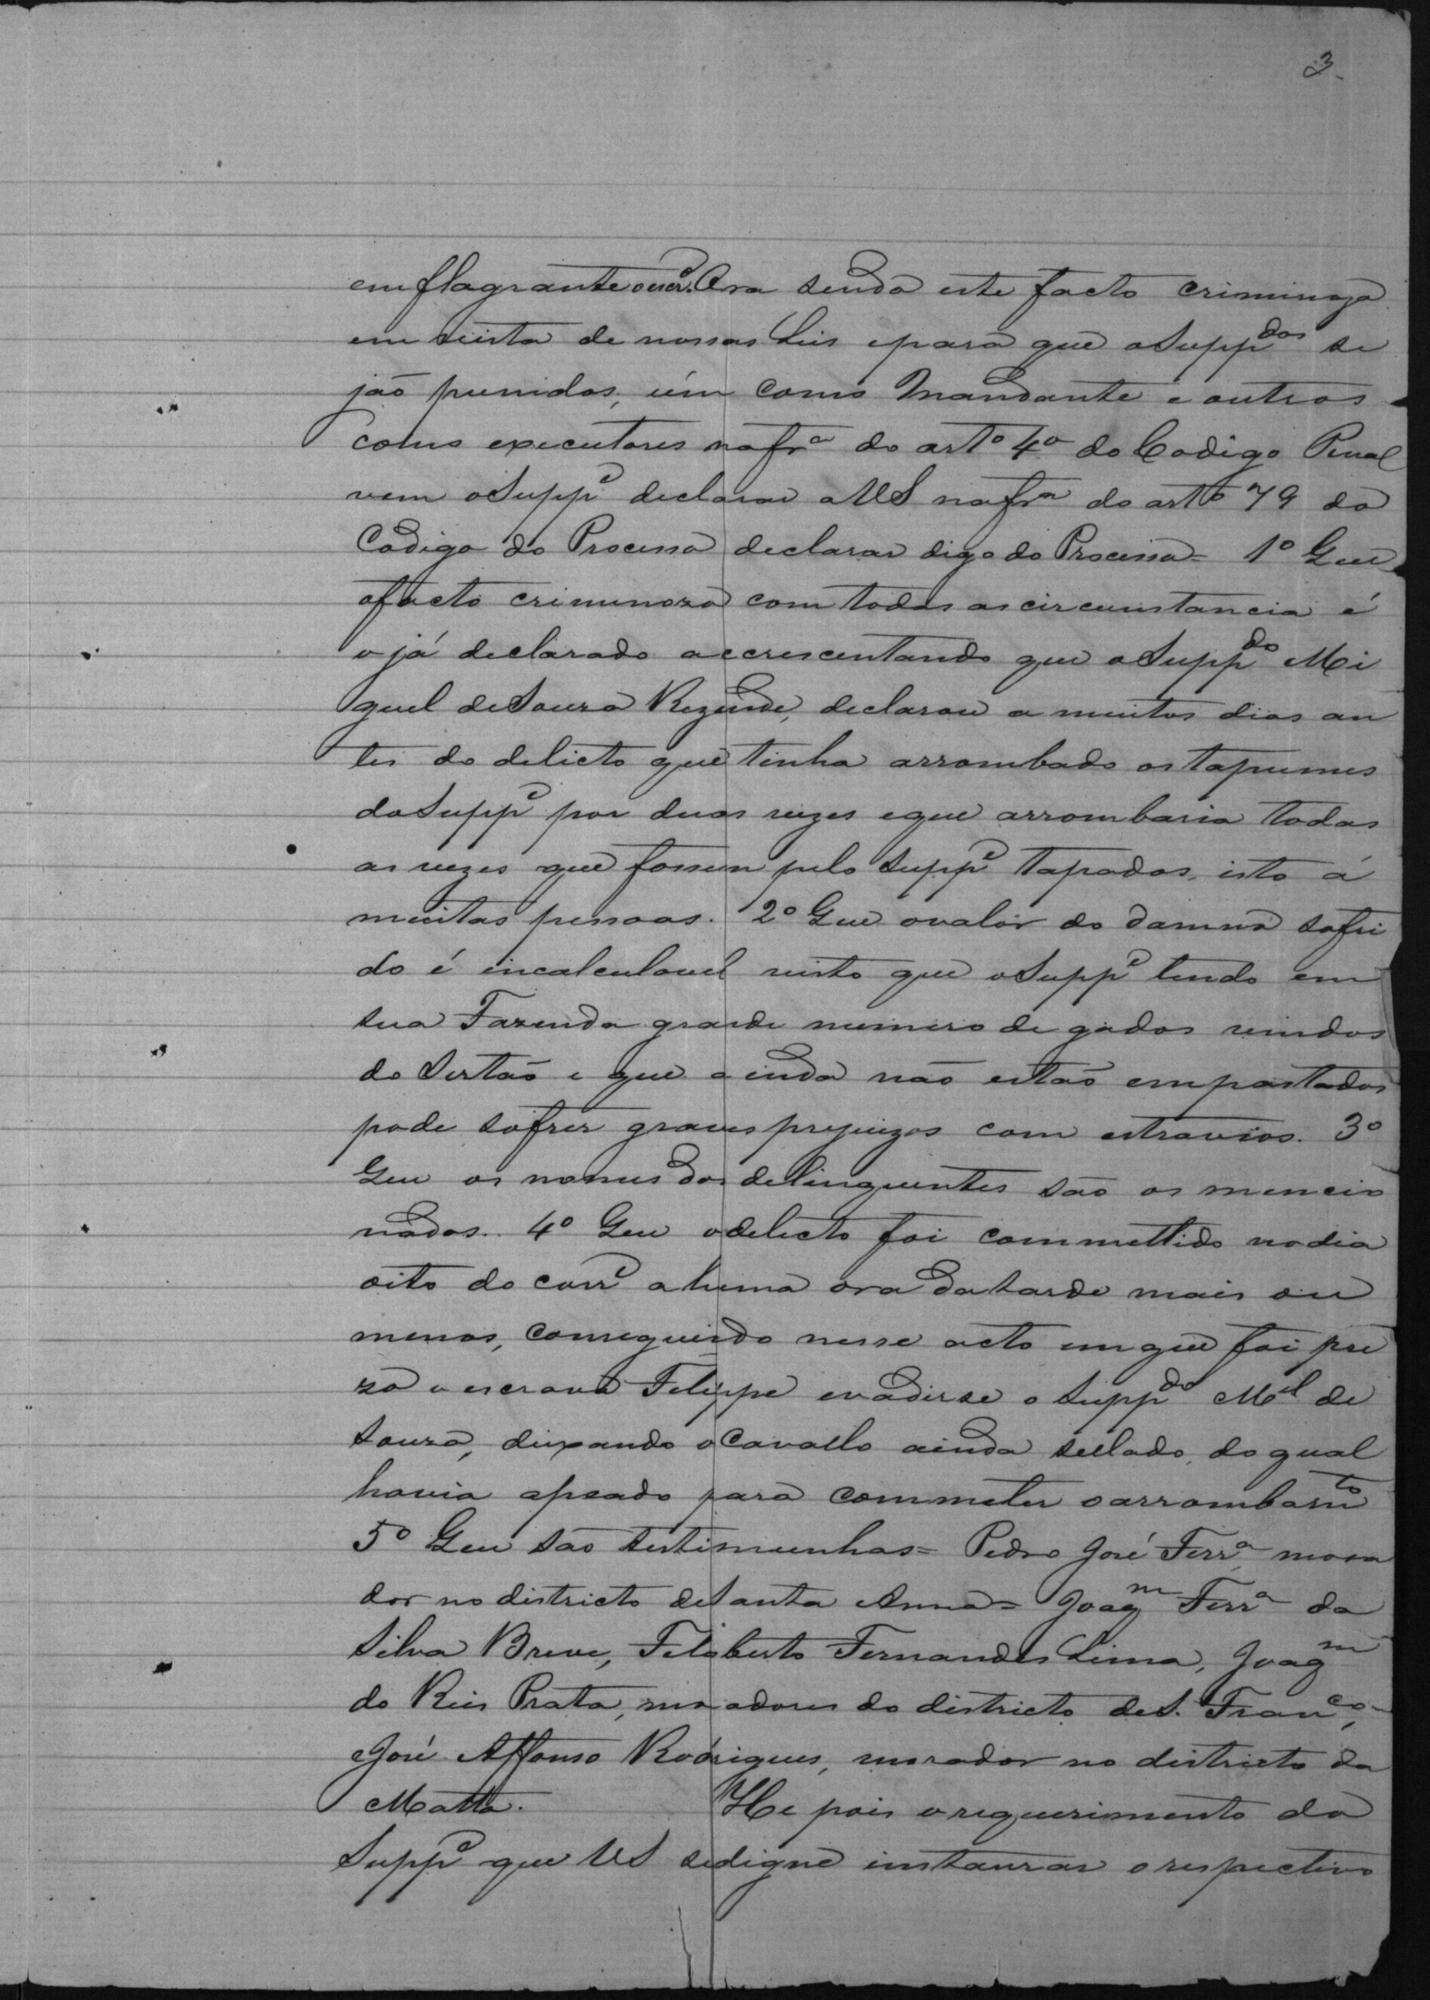 3.
em flagrante Ora sendo este facto criminozo
em vista de nossas Leis e para que os Supp.dos se
jão punidos, úm como Mandante e outros
como executores na fr.a do art.o 4.o do Codigo Penal
vem o Supp.e declarar a VS na fr.a do art.o 79 do
Codigo do Processo declarar digo do Processo = 1.o Que
o facto criminozo com todas as circumstancia é
o já declarado accrescentando que o Supp.do Mi
guel de Souza Rezende, declarou a muitos dias an
tes do delicto que tinha arrombado os tapumes
do Supp.e por duas vezes e que arrombaria todas
as vezes que fossem pelo Supp.e tapados, isto á
muitas pessoas. 2.o Que o valor do damno sofri
do é incalculavel visto que o Supp.e tendo em
sua Fazenda grande numero de gados vindos
do Sertão e que ainda não estão empastados
pode sofrer graves prejuizos com estravios. 3.o
Que os nomes dos delinquentes são os mencio
nados. 4.o Que o delicto foi commettido no dia
oito do corr.e a huma ora da tarde mais ou
menos, conseguindo nesse acto em que foi pre
zo o escravo Felippe evadirse o Supp.do M.el de
Souza, deixando o Cavallo ainda sellado, do qual
havia apeado para commeter o arrombam.to
5.o Que são testimunhas = Pedro José Ferr.a mora
dor no districto de Santa Anna = Joaq.m Ferr.a da
Silva Breve, Felisberto Fernandes Lima, Joaq.m
do Reis Prata, moradores do districto de S. Fran.co,
José Affonso Rodrigues, morador no districto da
Matta. He pois o requerimento do
Supp.e que VS se digne instaurar o respectivo